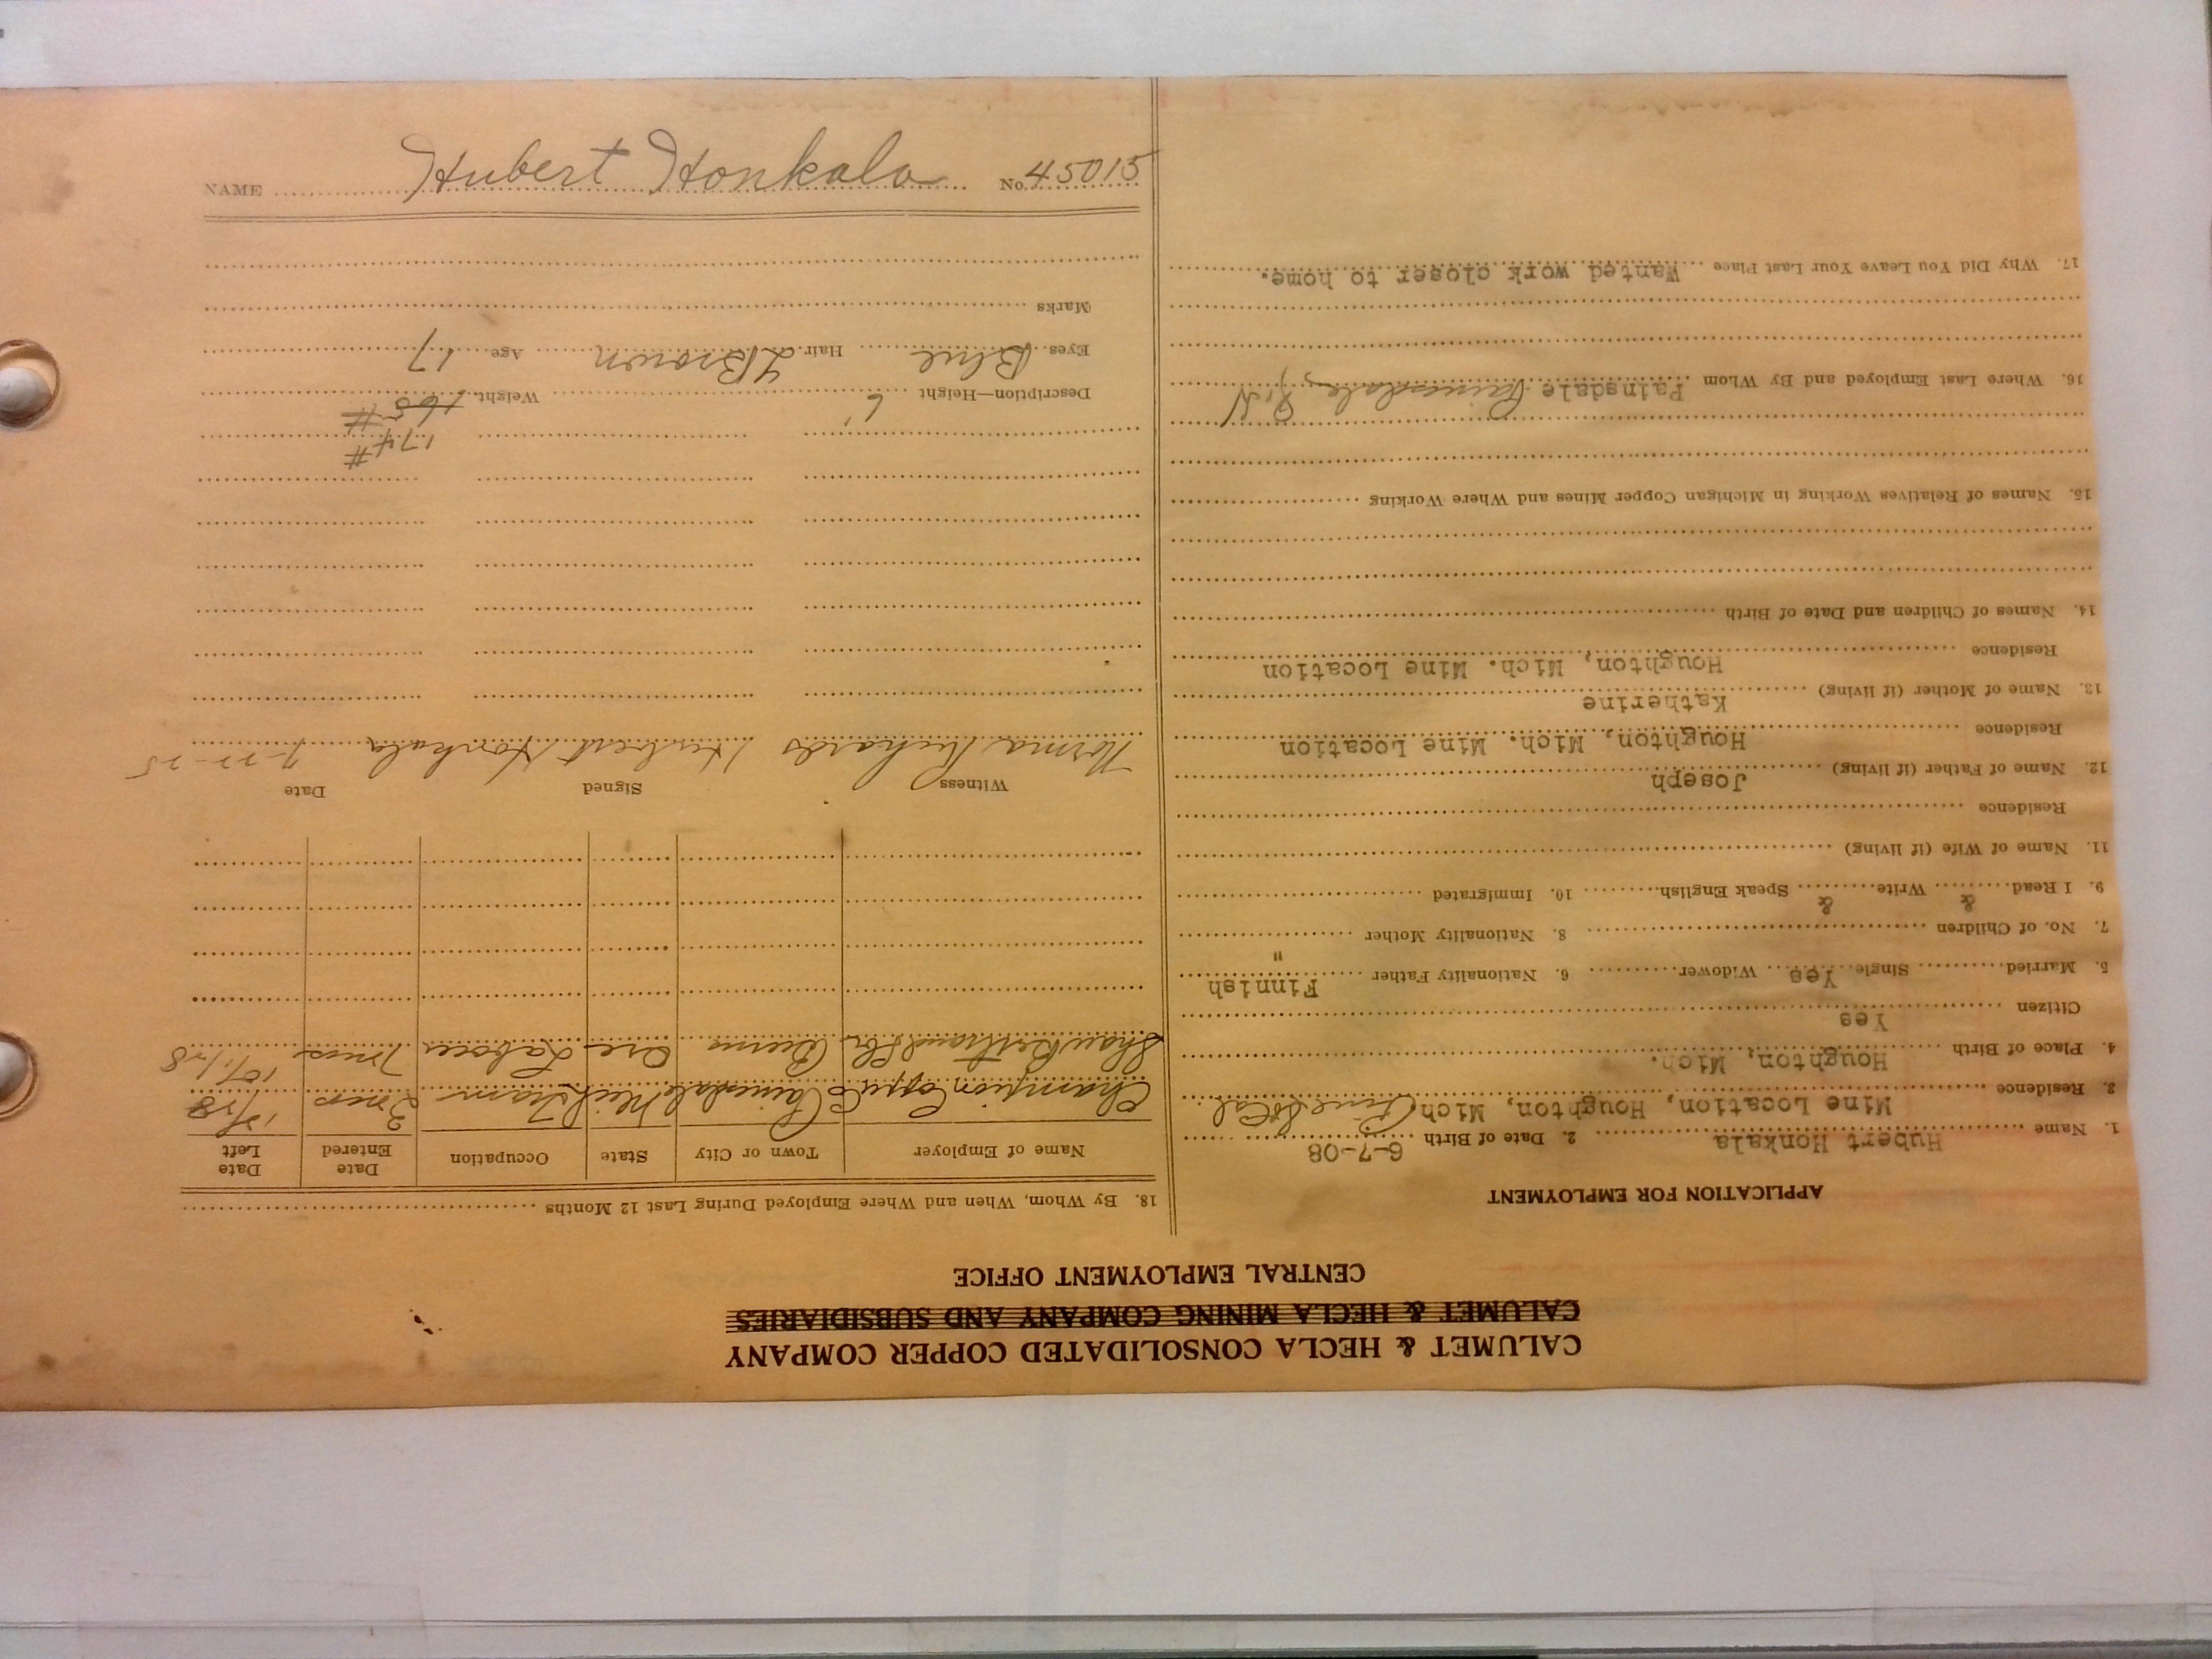 CALUMET & HECLA CONSOLIDATED COPPER COMPANY
CALUMET & HECLA MINING COMPANY AND SUBSIDIARIES
CENTRAL EMPLOYMENT OFFICE
APPLICATION FOR EMPLOYMENT
1. Name Hubert Honkala 2. Date of Birth 6-7-08
3. Residence Mine Location, Houghton, Mich
4. Place of Birth Houghton, Mich.
Citizen Yes
5. Married Single Yes Widower 6. Nationality Father Finnish
7. No. of Children 8. Nationality Mother "
9. I Read & Write & Speak English 10. Immigrated
11. Name of Wife (if living)
Residence
12. Name of Father (if living) Joseph
Residence Houghton, Mich. Mine Location
13. Name of Mother (if living) Katherine
Residence Houghton, Mich. Mine Location
14. Names of Children and Date of Birth
15. Names of Relatives Working in Michigan Copper Mines and Where Working
16. Where Last Employed and By Whom Painsdale Painesdale,
17. Why Did You Leave Your Last Place Wanted work closer to home.
18. By Whom, When and Where Employed During Last 12 Months
Name of Employer Town or City State Occupation Date Entered Date Left
Champion Copper Co Painesdale Mich Tram 2 mos
Shaw Bertram Ore Laborer
Witness Signed Date
Norma Richards Hubert Honkala
174 #
Description—Height 6' Weight 165 #
Eyes Blue Hair L Brown Age 17
Marks
NAME Hubert Honkala No. 45015